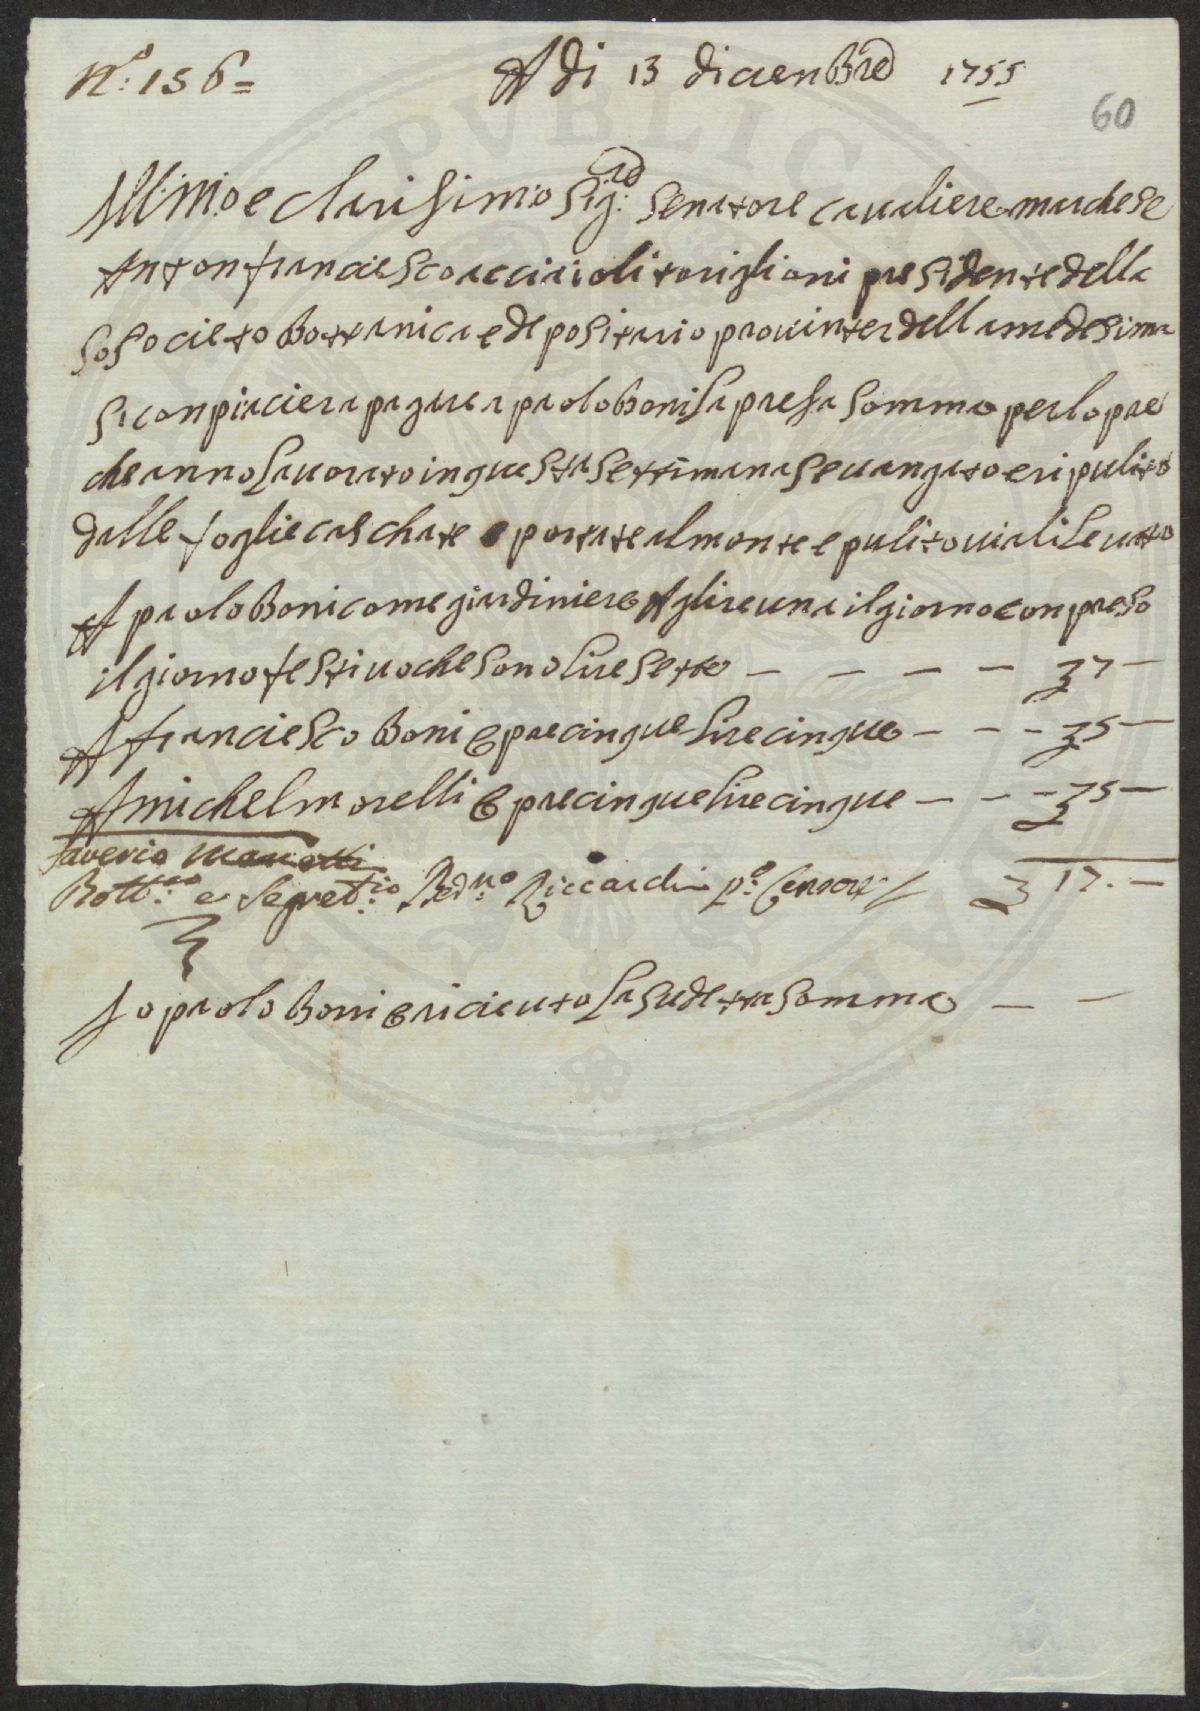 N.º 156=
A di 13 diciembre 1755
60
Ill:mo e clarisimo Sig:re senatore cavaliere marchese
Antonfranciesco acciaioli toriglioni presidente della
so societa bottanica e depositario provinter della medesima
si conpiaciera pagare a paolo Boni la presa somma per lopre
che anno lavorato in questa settimana se vangato e ripulito
dalle foglie caschate e portate al monte e pulito viali levato
A paolo Boni come giardiniere A lire una il giorno conpreso
il giorno festivo che sono lire sette — — — — 7 —
A franciesco Boni opre cinque lire cinque — — - 5 —
A michel morelli opre cinque lire cinque — — - 5 —
Saverio Manetti
Bott:co e Segret:io Bed:no Riccardi P:º Censore 17. —
Jo paolo Boni o riceuto la sudetta somma — —
PVBLIC